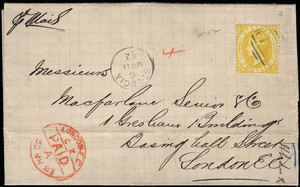 p Mail
ST LUCIA
C
MR 11
82
4
Messieurs
Macfarlane Senior & Co
1 Gresham Buildings
Basinghall Street
London E.C.
LONDON E.C.
PAID